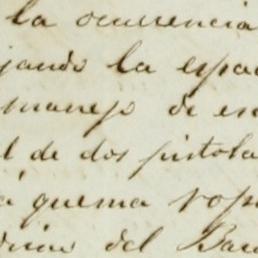 la ocurrencia
jando la espad
manejo de es
l de dos pistola
á quema rop
del Bar